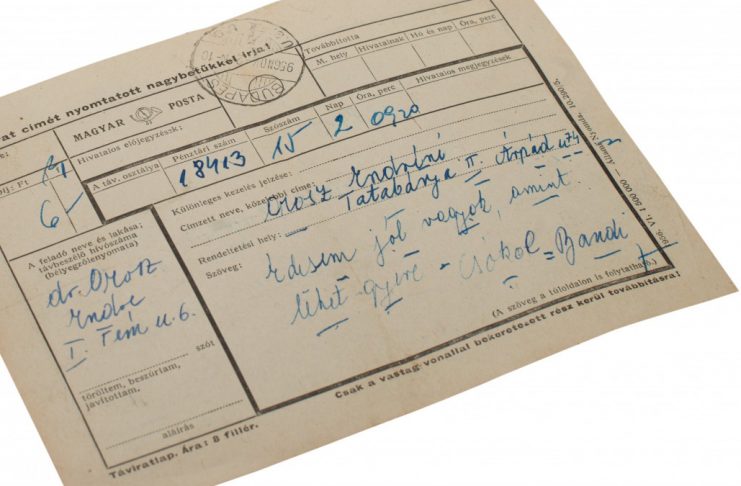 at címét nyomtatott nagybetűkkel írja!
MAGYAR POSTA
Hivatalos előjegyzések:
Továbbította
M. hely Hivatalnak Hó és nap Óra, perc
A táv. osztálya Pénztári szám Szószám Nap Óra, perc Hivatalos megjegyzések
18413 15 2 0920
díj: Ft
6-
Különleges kezelés jelzése:
Címzett neve, közelebbi címe:
Orosz Endréné
Tatabánya II. Árpád u 74
Rendeltetési hely:
Szöveg:
Édesem jól vagyok, amint
lehet gyere - Csókol = Bandi
(A szöveg a túloldalon is folytatható.)
A feladó neve és lakása;
távbeszélő hívószáma
(bélyegzőlenyomata)
dr. Orosz
Endre
I. Fém u. 6.
szót
töröltem, beszúrtam,
javítottam.
aláírás
Csak a vastag vonallal bekeretezett rész kerül továbbításra!
Táviratlap. Ára: 8 fillér.
1956. VI. 1 500 000 Állami Nyomda, 10.200/5.
BUDAPEST